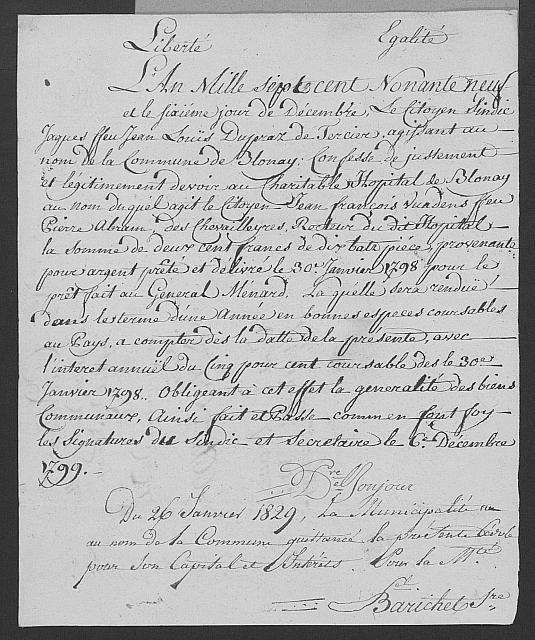 Liberté Egalité
L'An Mille Sept cent Nonante neuf
et le sixième jour de Décembre, Le Citoyen Sindic
Jaques ffeu Jean Louïs Dupraz de Tercier, agissant au
nom de la Commune de Blonay: Confesse de justement
et légitimement devoir au Charitable Hopital de Blonay
au nom duquel agit le Citoyen Jean François Vuadens ffeu
Pierre Abram, des Chevalleyres, Recteur du dit Hopital
la somme de deux cent francs de dix batz pièce, provenante
pour argent prêté et délivré le 30e. Janvier 1798 pour le
prêt fait au General Ménard. La quelle sera rendue
dans le terme d'une Année en bonnes especes coursables
au Pays, a compter dès la datte de la présente, avec
l'interet annuël du Cinq pour cent coursable dès le 30e
Janvier 1798. Obligeant à cet effet la generalité des biens
Communaux, Ainsi fait et Passé comm'en font foy
les signatures du Sindic et Secretaire le 6e. Décembre
1799.
Du 26 Janvier 1829, La Municipalité
au nom de la Commune quittance la présente Cédule
pour Son Capital et Intérêts. Pour la M.té
Barichet Sre